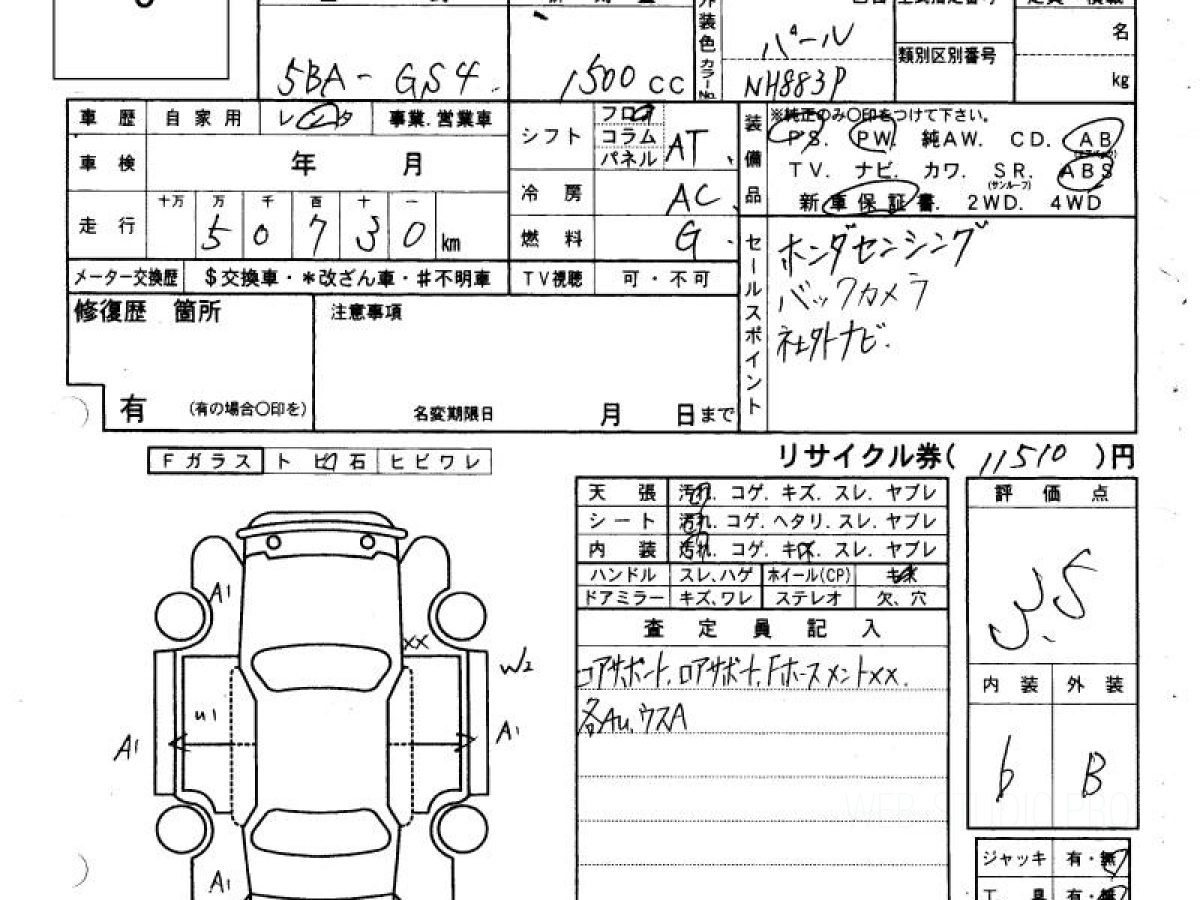 5BA-GS4
1500cc
外装色 カラーNo.
パール
NH883P
類別区別番号
名
kg
車歴 自家用 レンタ 事業.営業車
シフト フロア コラム パネル AT
装備品
※純正のみ○印をつけて下さい。
PS. PW. 純AW. CD. AB
車検 年 月
TV. ナビ. カワ. SR. ABS
(サンルーフ)
冷房 AC
新車保証書. 2WD. 4WD
走行 十万 万 千 百 十 一
50730 km
燃料 G
メーター交換歴 $交換車・*改ざん車・#不明車
TV視聴 可・不可
セールスポイント
ホンダセンシング
バックカメラ
社外ナビ.
修復歴 箇所
有 (有の場合○印を)
注意事項
名変期限日 月 日まで
Fガラス トビ石 ヒビワレ
リサイクル券(11510)円
天張 汚れ. コゲ. キズ. スレ. ヤブレ
シート 汚れ. コゲ. ヘタリ. スレ. ヤブレ
内装 汚れ. コゲ. キズ. スレ. ヤブレ
ハンドル スレ、ハゲ ホイール(CP)
ドアミラー キズ、ワレ ステレオ 欠、穴
査定員記入
コアサポート,ロアサポート,Fホースメントxx.
各AU,ウスA
評価点
3.5
内装 外装
b B
A1
XX
W2
U1
A1
A1
A1
WEB STUDIO PRO
ジャッキ 有・無
工具 有・無